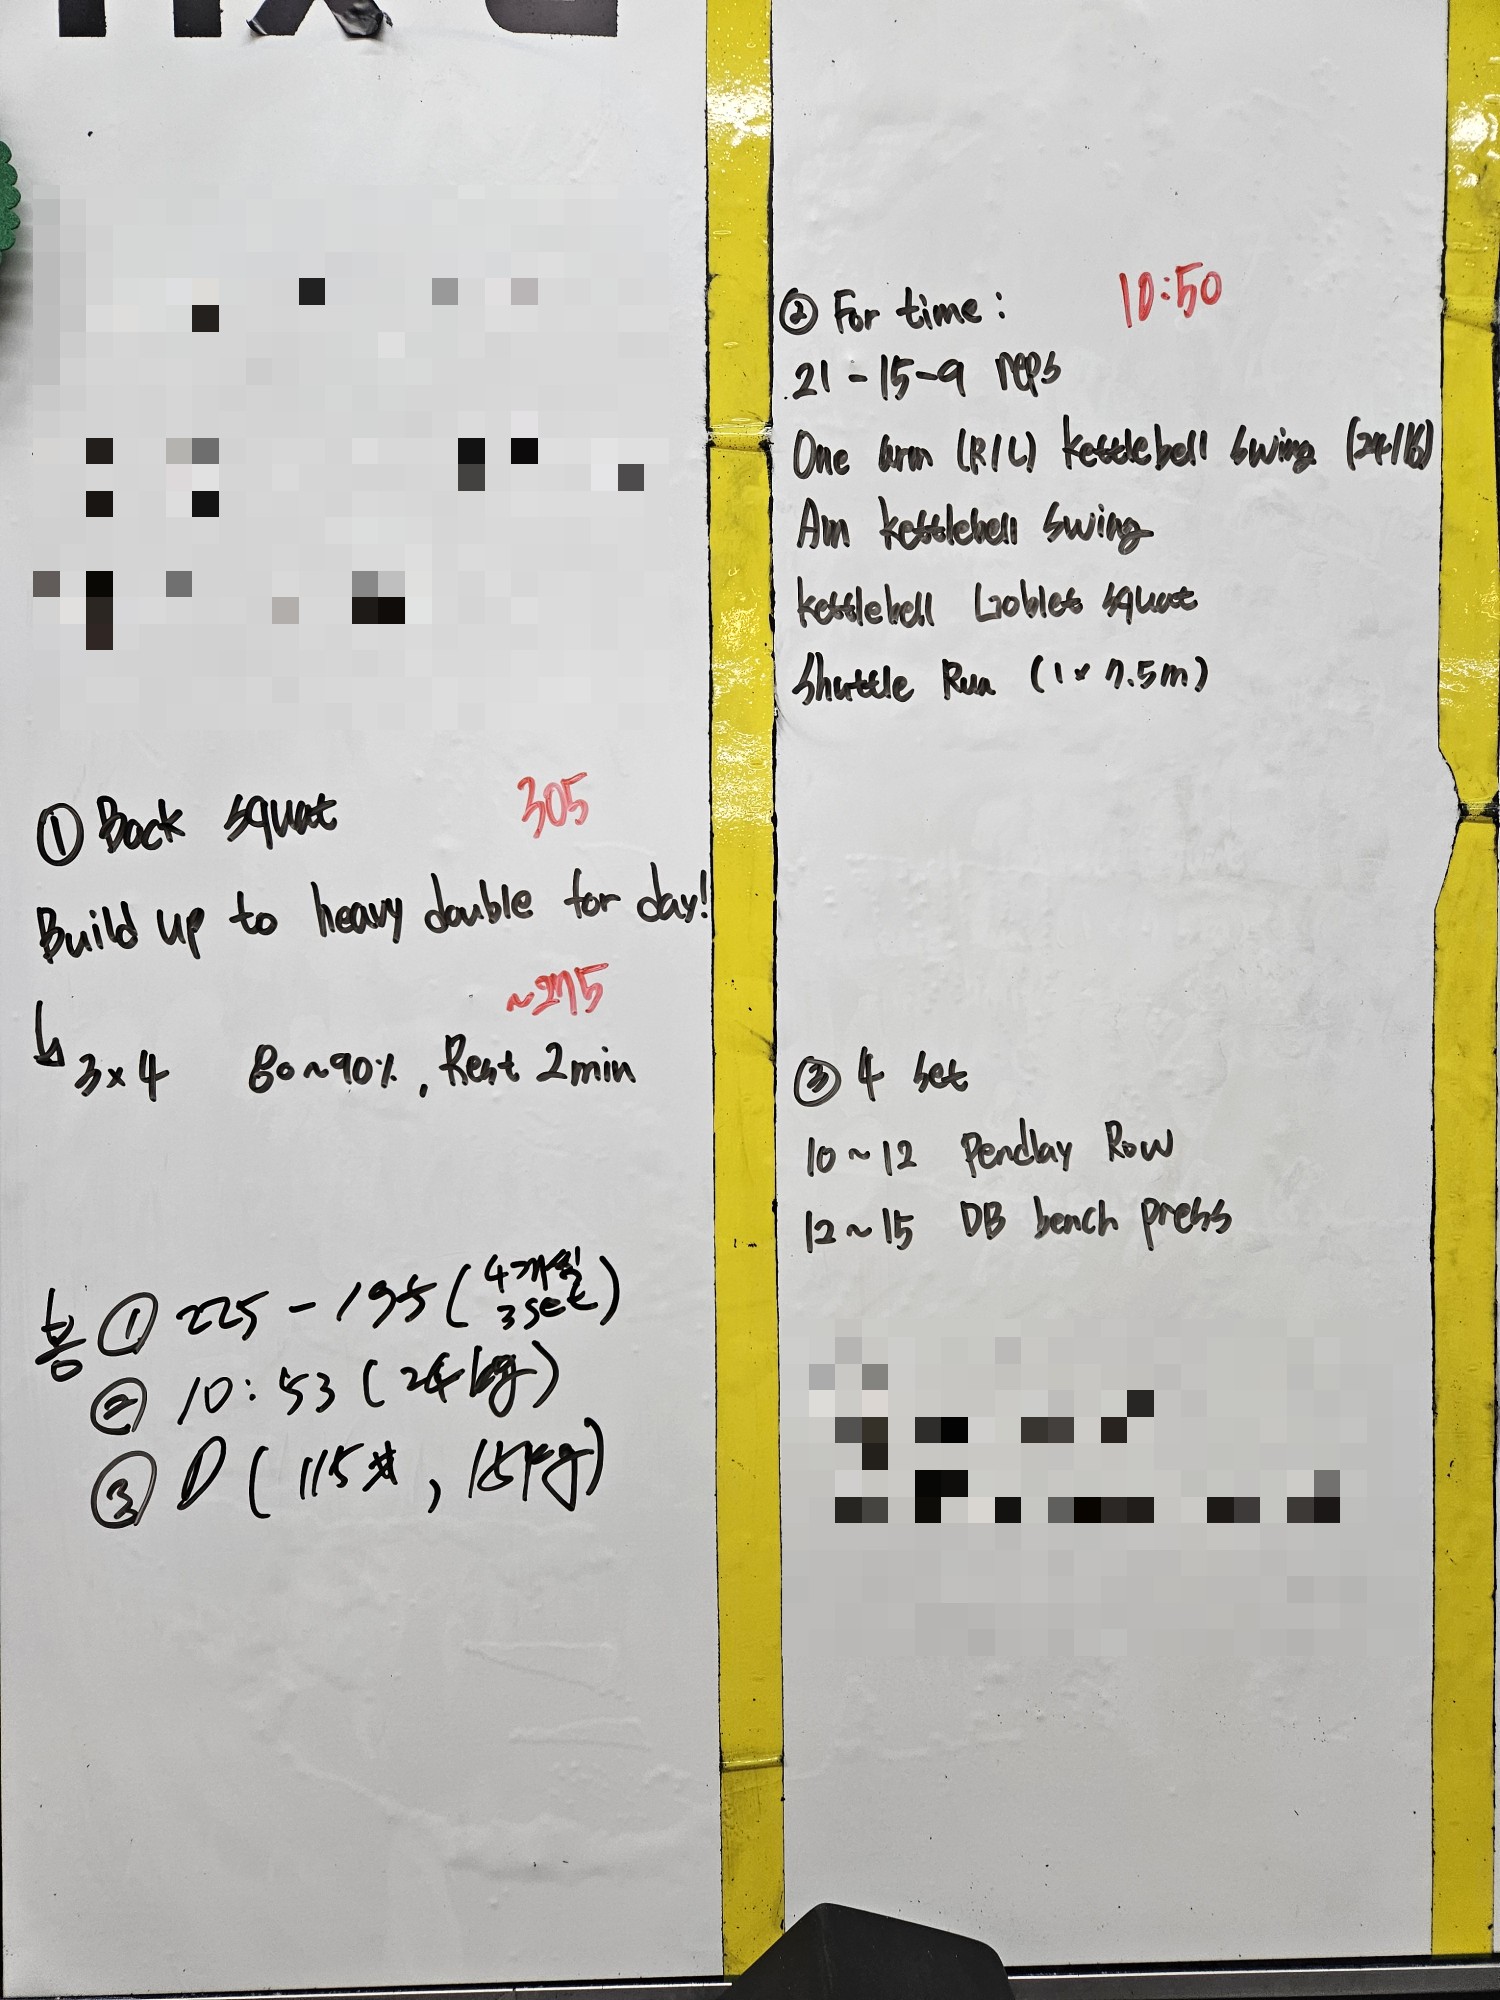 ① Back squat 305
Build up to heavy double for day!
~275
↳ 3x4 80~90%, Rest 2min
봉 ① 225 - 195 (4개씩 3set)
② 10:53 (24kg)
③ D (115#, 15kg)
② For time: 10:50
21-15-9 reps
One arm (R/L) kettlebell swing (24/16)
Am kettlebell swing
kettlebell Goblet squat
Shuttle Run (1x7.5m)
③ 4 set
10~12 Pendlay Row
12~15 DB bench press